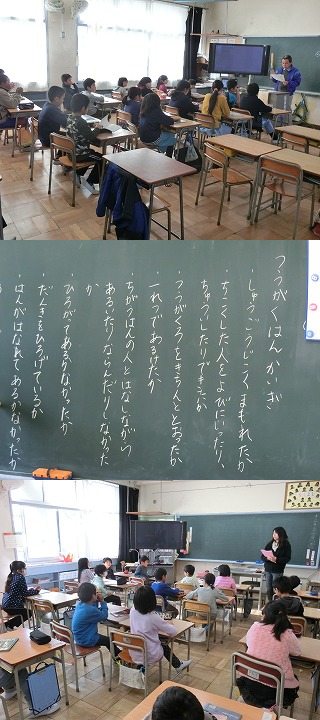 つうがくはんかいぎ
・しゅうごうじこくまもれたか
・ちこくした人をよびにいったり、
ちゅういしたりできたか
・つうがくろをきちんととおったか
・一れつであるけたか
・ちがうはんの人とはなしながら
あるいたりならんだりしなかった
か
・ひろがってあるかなかったか
・だんさをひろげているか
・はんがはなれてあるかなかったか